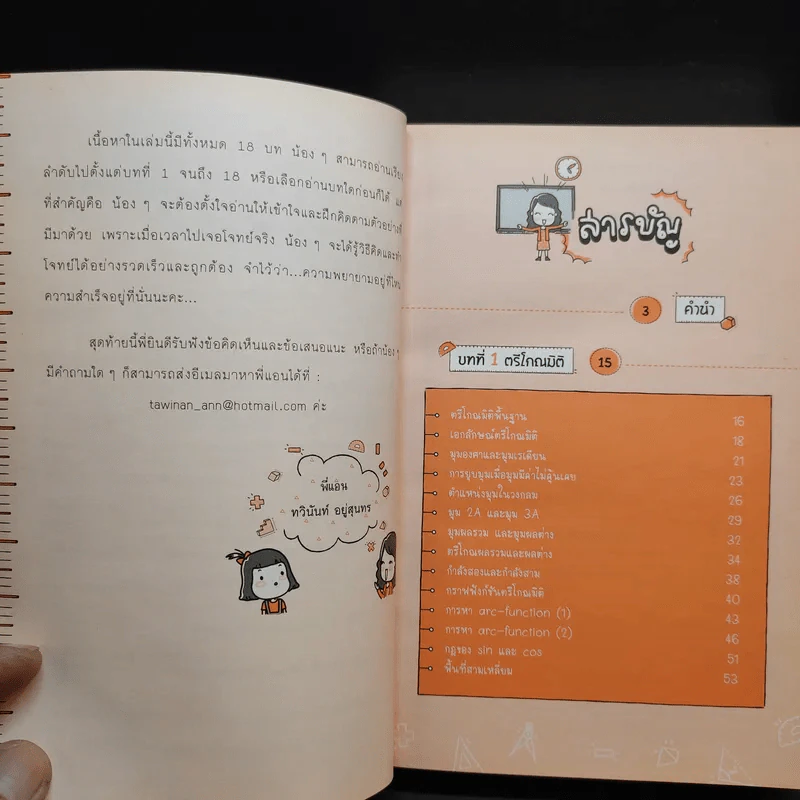 เนื้อหาในเล่มนี้มีทั้งหมด 18 บท น้อง ๆ สามารถอ่านเรียง
ลำดับไปตั้งแต่บทที่ 1 จนถึง 18 หรือเลือกอ่านบทใดก่อนก็ได้
ที่สำคัญคือ น้อง ๆ จะต้องตั้งใจอ่านให้เข้าใจและฝึกคิดตามตัวอย่าง
มีมาด้วย เพราะเมื่อเวลาไปเจอโจทย์จริง น้อง ๆ จะได้รู้วิธีคิดและ
โจทย์ได้อย่างรวดเร็วและถูกต้อง จำไว้ว่า...ความพยายามอยู่ที่ไหน
ความสำเร็จอยู่ที่นั่นนะคะ...
สุดท้ายนี้พี่ยินดีรับฟังข้อคิดเห็นและข้อเสนอแนะ หรือถ้าน้อง ๆ
มีคำถามใด ๆ ก็สามารถส่งอีเมลมาหาพี่แอนได้ที่ :
tawinan_ann@hotmail.com ค่ะ
พี่แอน
ทวินันท์ อยู่สุนทร
สารบัญ
3 คำนำ
บทที่ 1 ตรีโกณมิติ 15
ตรีโกณมิติพื้นฐาน 16
เอกลักษณ์ตรีโกณมิติ 18
มุมองศาและมุมเรเดียน 21
การยุบมุมเมื่อมุมมีค่าไม่คุ้นเลย 23
ตำแหน่งมุมในวงกลม 26
มุม 2A และมุม 3A 29
มุมผลรวม และมุมผลต่าง 32
ตรีโกณผลรวมและผลต่าง 34
กำลังสองและกำลังสาม 38
กราฟฟังก์ชันตรีโกณมิติ 40
การหา arc-function (1) 43
การหา arc-function (2) 46
กฎของ sin และ cos 51
พื้นที่สามเหลี่ยม 53